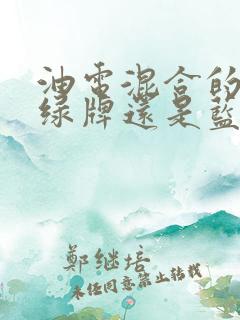 油電混合的
绿牌還是藍
鄭继培
未任同意禁止转载